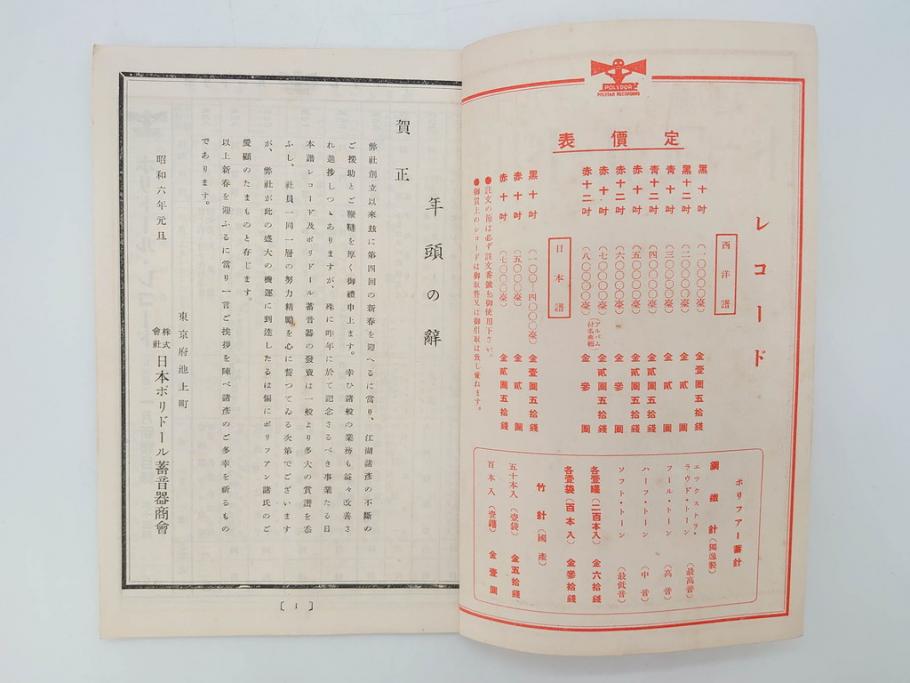 POLYDOR
POLYFAR RECORDING
定價表
レコード
西洋譜
黑十吋 (一〇〇〇〇臺) 金壹圓五拾錢
黑十二吋 (二〇〇〇〇臺) 金貳圓
靑十吋 (三〇〇〇〇臺) 金貳圓
靑十二吋 (四〇〇〇〇臺) 金貳圓五拾錢
赤十吋 (五〇〇〇〇臺) 金貳圓五拾錢
赤十二吋 (六〇〇〇〇臺) 金參圓
赤十吋 (七〇〇〇〇臺) (アルバム付名曲輯) 金貳圓五拾錢
赤十二吋 (八〇〇〇〇臺) 金參圓
日本譜
黑十吋 金壹圓五拾錢
赤十吋 (五〇〇〇臺) 金貳圓
赤十吋 (七〇〇〇臺) 金貳圓五拾錢
●註文の節は必ず註文番號を御使用下さい。
●御買上のレコードは御取替又は御引取は致し兼ねます。
ポリファー蓄針
鋼鐵針(獨逸製)
エッキストラ・ラウド・トーン (最高音)
フール・トーン (高音)
ハーフ・トーン (中音)
ソフト・トーン (最低音)
各壹罐(二百本入) 金六拾錢
各壹袋(百本入) 金參拾錢
竹針(國產)
五十本入(壹袋) 金五拾錢
百本入(壹罐) 金壹圓
賀正
年頭の辭
弊社創立以來玆に第四回の新春を迎へるに當り、江湖諸彥の不斷の
ご援助とご鞭韃を厚く御禮申上ます。幸ひ諸般の業務も益々改善さ
れ進捗しつゝありますが、殊に昨年に於て記念さるべき事業たる日
本譜レコード及ポリドール蓄音器の發賣は一般より多大の賞讃を忝
ふし、社員一同一層の努力精勵を心に誓つてゐる次第でございます
が、弊社が此の盛大の機運に到達したるは偏にポリファン諸氏のご
愛顧のたまものと存じます。
以上新春を迎ふるに當り一言ご挨拶を陳べ諸彥のご多幸を祈るもの
であります。
昭和六年元旦
東京府池上町
株式會社 日本ポリドール蓄音器商會
〔1〕